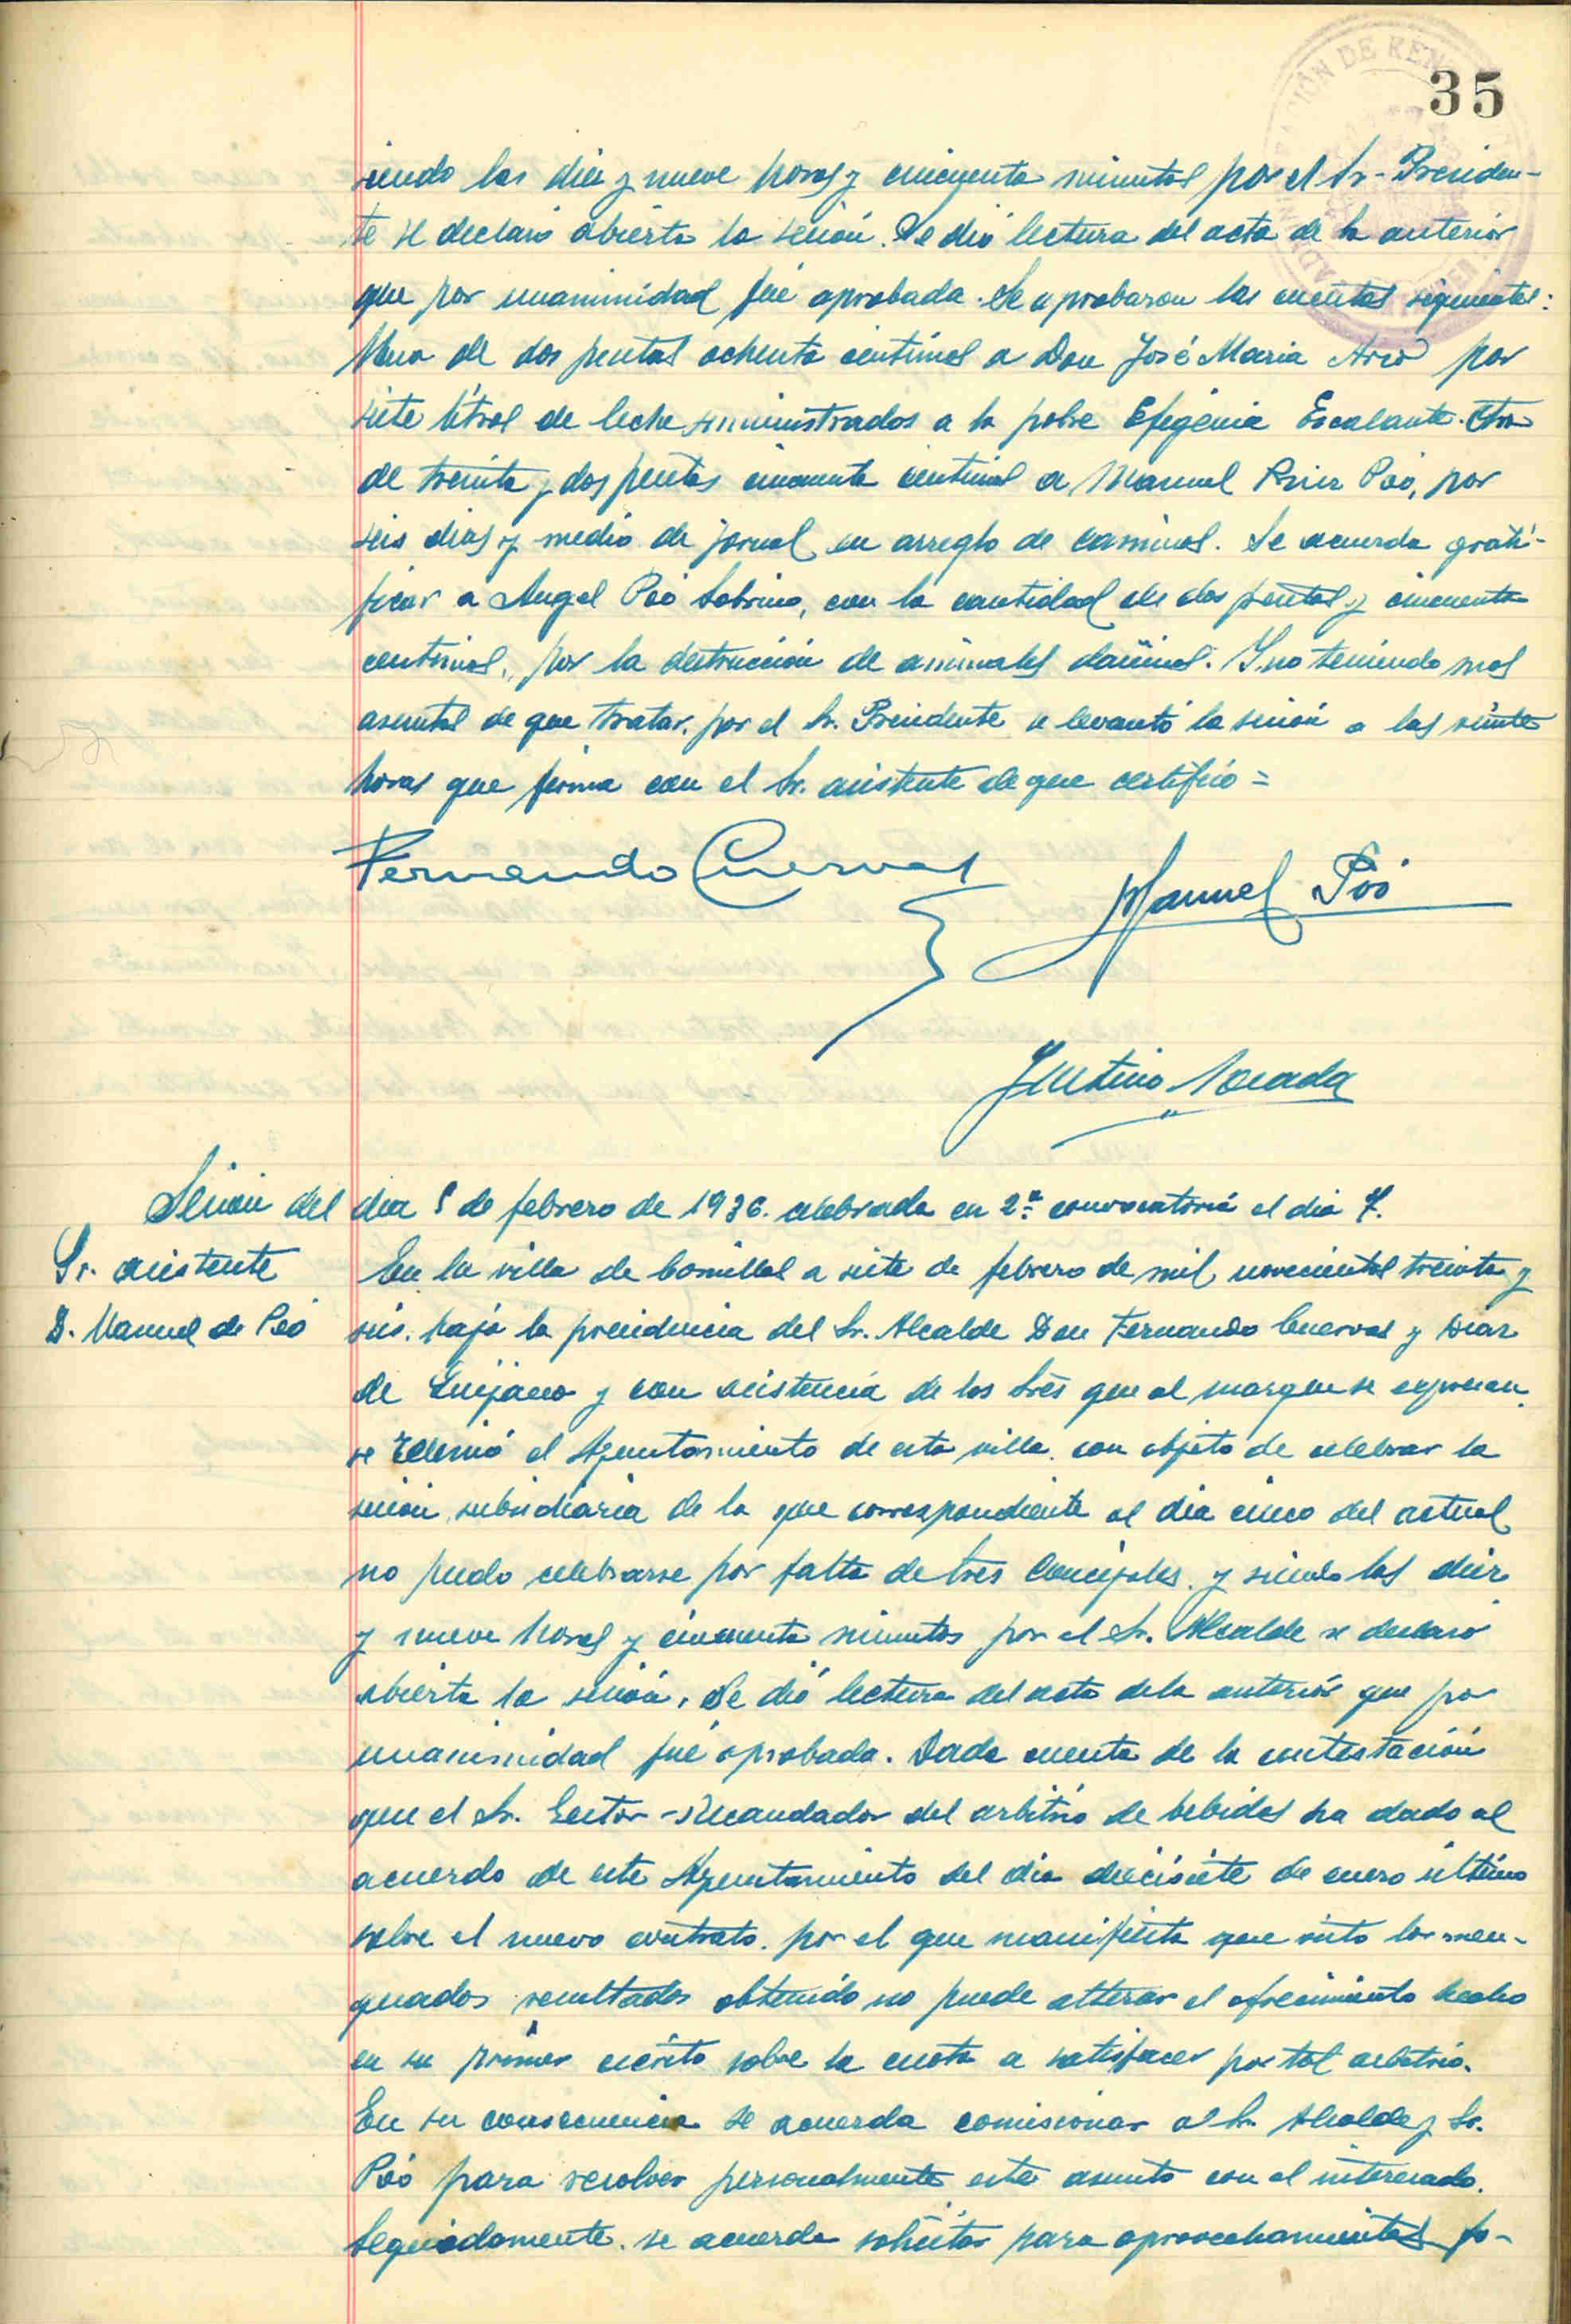 35
siendo las diez y nueve horas y cincuenta minutos por el Sr. Presiden-
te se declaró abierta la sesión. Se dió lectura del acta de la anterior
que por unanimidad fué aprobada. Se aprobaron las cuentas siguientes:
Una de dos pesetas ochenta centimos a Don José Maria Arce por
siete litros de leche suministrados a la pobre Efigénia Escalante. Otra
de treinta y dos pesetas cincuenta centimos a Manuel Ruiz Póo, por
seis dias y medio de jornal en arreglo de caminos. Se acuerda grati-
ficar a Angel Póo Sobrino, con la cantidad de dos pesetas y cincuenta
centimos, por la destrucción de animales dañinos. Y no teniendo mas
asuntos de que tratar, por el Sr. Presidente se levantó la sesión a las veinte
horas que firma con el Sr. asistente de que certifico =
Fernando Cuervas
Manuel Póo
Justino
Sesión del dia 5 de febrero de 1936. celebrada en 2ª convocatoria el dia 7.
Sr. asistente
D. Manuel de Póo
En la villa de Comillas a siete de febrero de mil novecientos treinta y
seis, bajo la presidencia del Sr. Alcalde Don Fernando Cuervas y Diaz
de Quijano y con asistencia de los Sres que al margen se expresan,
se reunió el Ayuntamiento de esta villa con objeto de celebrar la
sesión subsidiaria de la que correspondiente al dia cinco del actual
no pudo celebrarse por falta de Sres Concejales, y siendo las diez
y nueve horas y cincuenta minutos por el Sr. Alcalde se declaró
abierta la sesión. Se dió lectura del acta de la anterior que por
unanimidad fué aprobada. Dada cuenta de la contestación
que el Sr. Gestor-Recaudador del arbitrio de bebidas ha dado al
acuerdo de este Ayuntamiento del dia diecisiete de enero último
sobre el nuevo contrato, por el que manifiesta que visto los men-
guados resultados obtenido no puede alterar el ofrecimiento hecho
en su primer escrito sobre la cuota a satisfacer por tal arbitrio.
En su consecuencia se acuerda comisionar al Sr. Alcalde y Sr.
Póo para resolver personalmente este asunto con el interesado.
Seguidamente se acuerda solicitar para aprovechamientos fo-